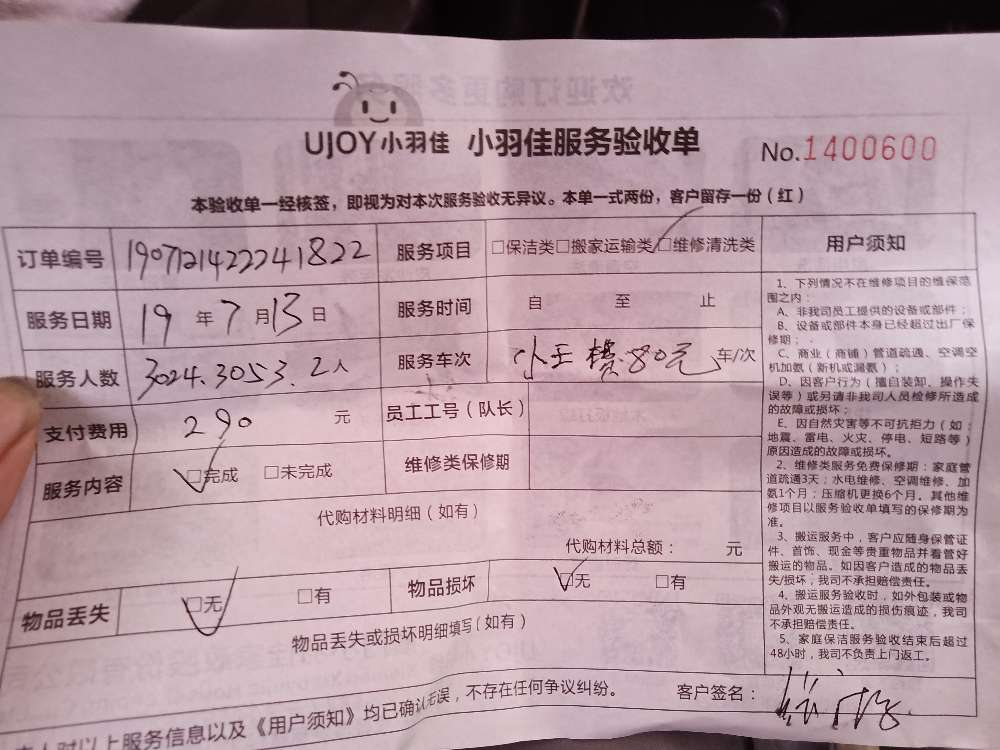 UJOY小羽佳 小羽佳服务验收单 No.1400600
本验收单一经核签，即视为对本次服务验收无异议。本单一式两份，客户留存一份（红）
订单编号 1907121422241822 服务项目 □保洁类□搬家运输类□维修清洗类
服务日期 19年7月13日 服务时间 自 至 止
服务人数 3024.3053.2人 服务车次 80元 车/次
支付费用 290 元 员工工号（队长）
服务内容 □完成 □未完成 维修类保修期
代购材料明细（如有）
代购材料总额： 元
物品丢失 □无 □有 物品损坏 □无 □有
物品丢失或损坏明细填写（如有）
人对以上服务信息以及《用户须知》均已确认无误，不存在任何争议纠纷。 客户签名：
用户须知
1、下列情况不在维修项目的维保范
围之内：
A、非我司员工提供的设备或部件；
B、设备或部件本身已经超过出厂保
修期；
C、商业（商铺）管道疏通、空调空
机加氨（新机或漏氨）；
D、因客户行为（擅自装卸、操作失
误等）或另请非我司人员检修所造成
的故障或损坏；
E、因自然灾害等不可抗拒力（如：
地震、雷电、火灾、停电、短路等）
原因造成的故障或损坏。
2、维修类服务免费保修期：家庭管
道疏通3天；水电维修、空调维修、加
氨1个月；压缩机更换6个月。其他维
修项目以服务验收单填写的保修期为
准。
3、搬运服务中，客户应随身保管证
件、首饰、现金等贵重物品并看管好
搬运的物品。如因客户造成的物品丢
失/损坏，我司不承担赔偿责任。
4、搬运服务验收时，如外包装或物
品外观无搬运造成的损伤痕迹，我司
不承担赔偿责任。
5、家庭保洁服务验收结束后超过
48小时，我司不负责上门返工。